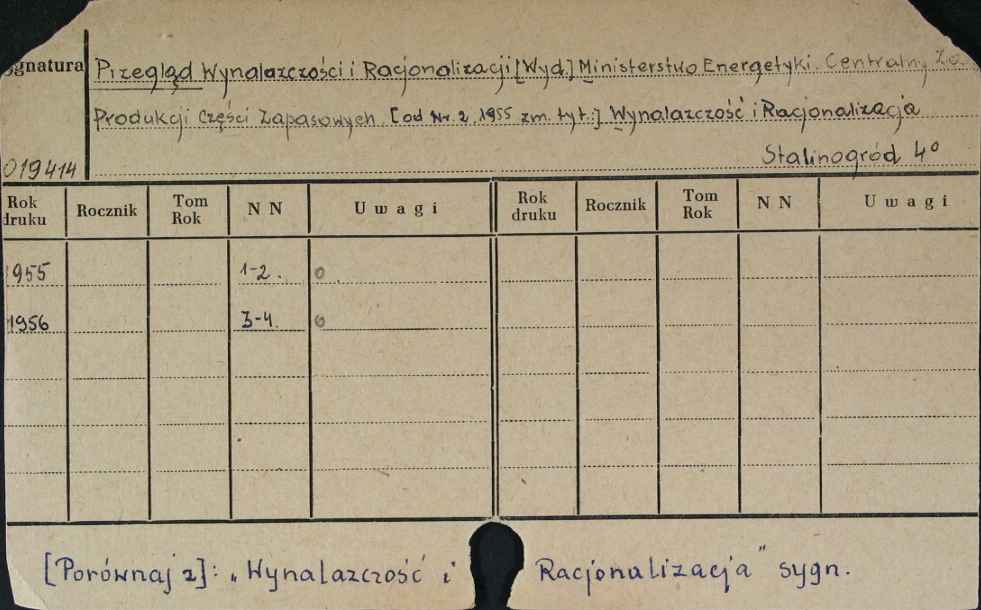 Sygnatura Przegląd Wynalazczości i Racjonalizacji [Wyd.] Ministerstwo Energetyki. Centralny
Produkcji Części Zapasowych. [od Nr. 2, 1955 zm. tyt.:] Wynalazczość i Racjonalizacja
019414 Stalinogród 4°
Rok druku Rocznik Tom Rok N N Uwagi Rok druku Rocznik Tom Rok N N Uwagi
1955 1-2. o
1956 3-4. o
[Porównaj z]: „Wynalazczość i Racjonalizacja" sygn.